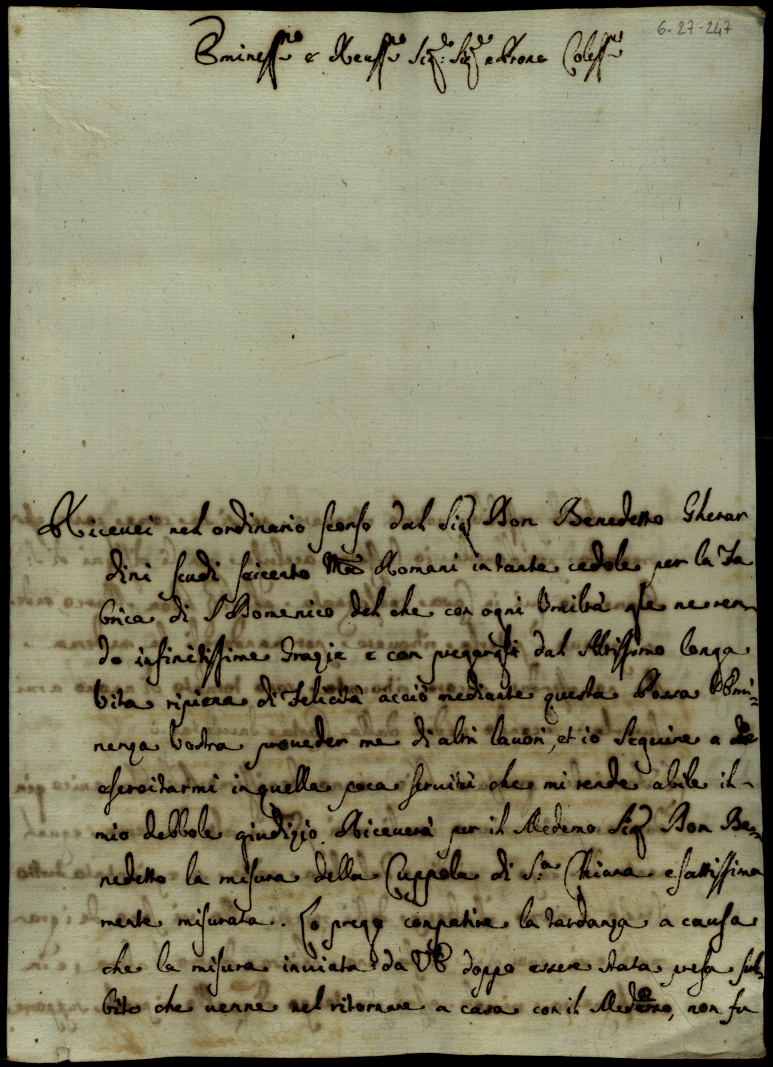 6-27-247
Eminess.mo e Reuss.mo Sig.re Sig.re e Prone Coless.mo
Riceuei nel ordinario scorso dal Sig. Don Benedetto Gherar
dini scudi seicento Mta Romani in tante cedole per la Fa
brica di S Domenico del che con ogni Vmiltà gle ne ren
do infinitissime Grazie e con pregargli dal Altissimo longa
Vita ripiena di Felicità acciò mediante questa Possa l'Emi=
nenza Vostra proueder me di altri lauori, et io seguire a
esercitarmi in quella poca seruitù che mi rende abile il
mio debbole giudizio. Riceuerà per il Medemo Sig. Don Be=
nedetto la misura della Cuppola di S.ta Chiara esattissima
mente misurata. Lo prego conpatire la tardanza a causa
che la misura inuiata da VE doppo essere stata presa sub=
bito che uenne nel ritornare a casa con il Medemo, non fu